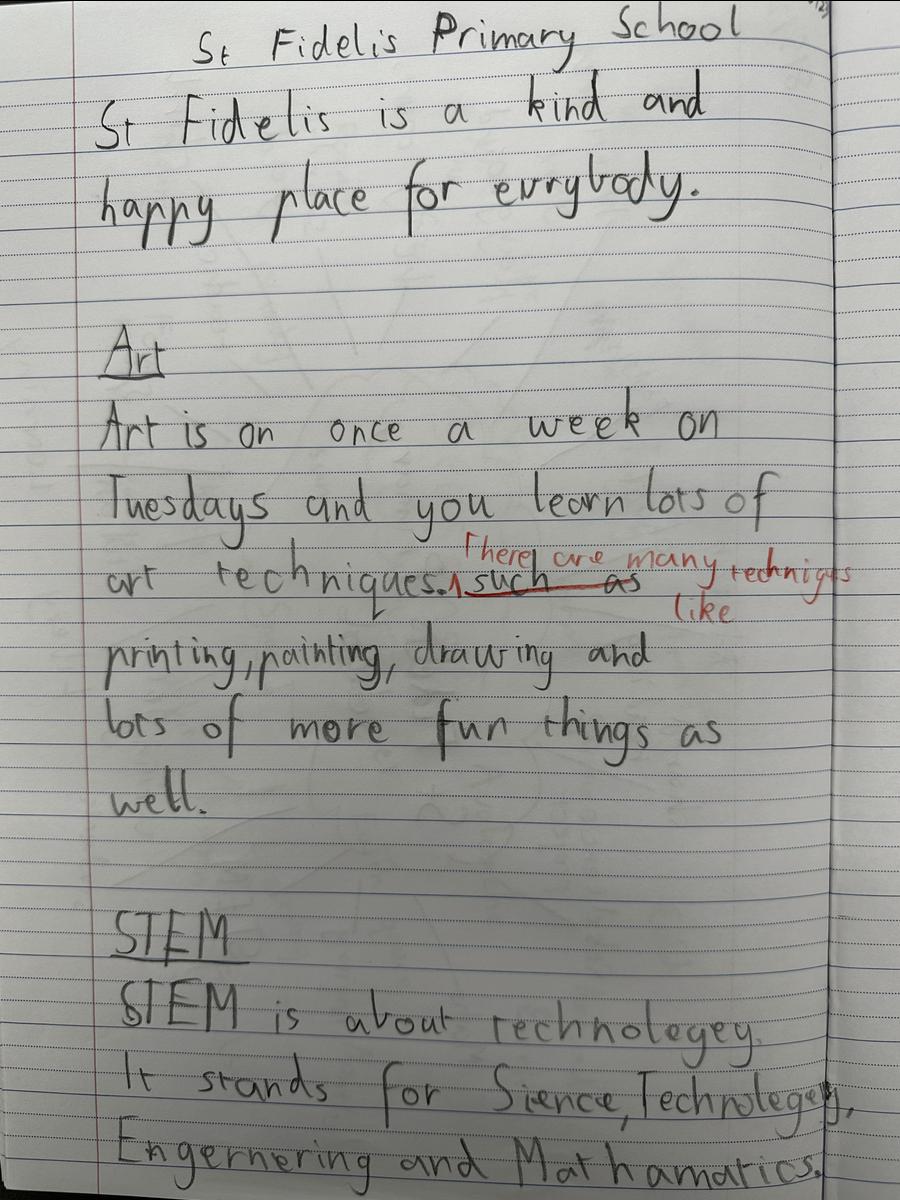 St Fidelis Primary School
St Fidelis is a kind and
happy place for evrybody.
Art
Art is on once a week on
Tuesdays and you learn lots of
art techniques. There are many techniqus
such as
like
printing, painting, drawing and
lots of more fun things as
well.
STEM
STEM is about technolegey.
It stands for Sience, Technolegey,
Engernering and Mathamatics.